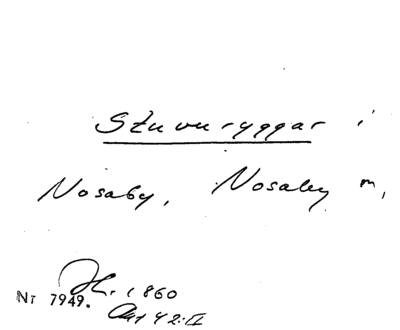 Stuvuryggar i
Nosaby, Nosaby m,
Nr 7949. 1860
42:II